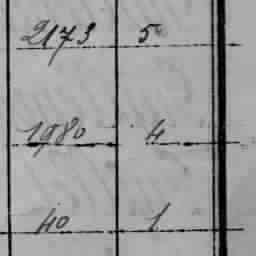 2173 5
1980 4
40 1